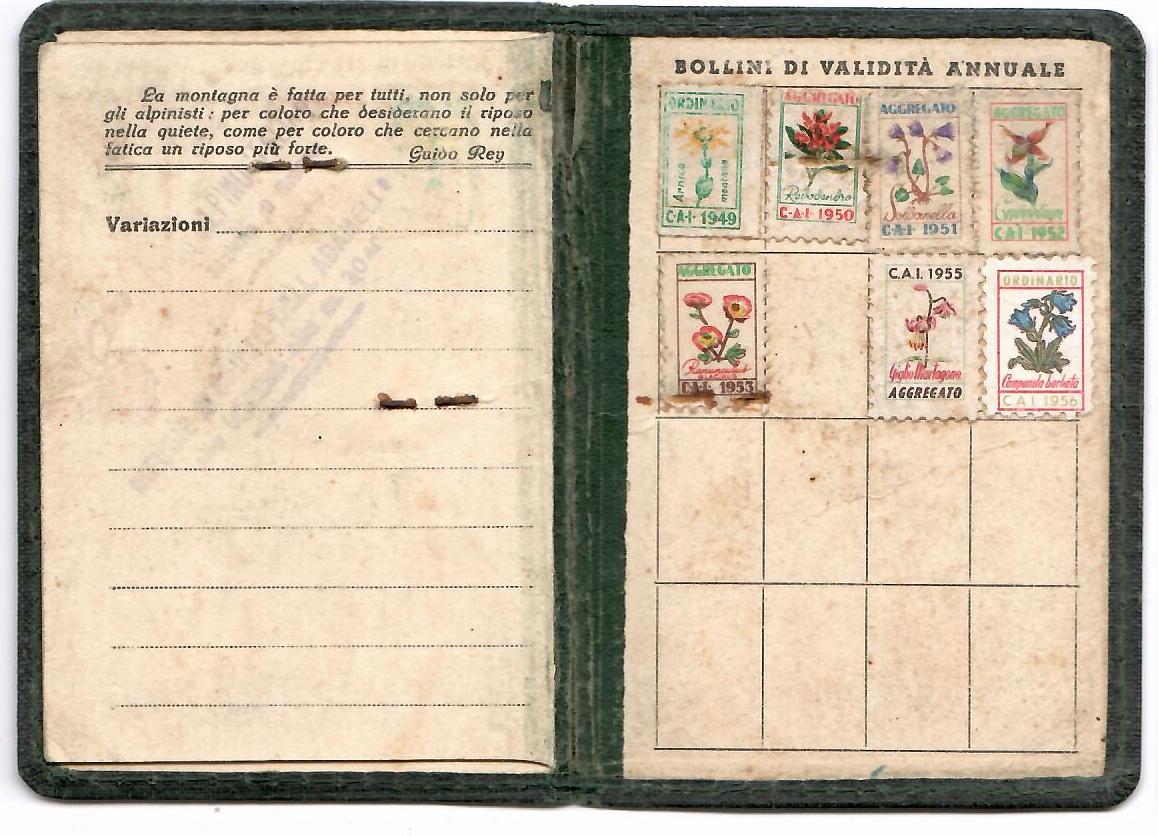 La montagna è fatta per tutti, non solo per
gli alpinisti: per coloro che desiderano il riposo
nella quiete, come per coloro che cercano nella
fatica un riposo più forte.
Guido Rey
Variazioni
BOLLINI DI VALIDITÀ ANNUALE
ORDINARIO
Arnica
montana
C·A·I· 1949
AGGREGATO
Rododendro
C·A·I· 1950
AGGREGATO
Soldanella
C·A·I· 1951
AGGREGATO
C·A·I 1952
AGGREGATO
Ranunculus
C·A·I· 1953
C.A.I. 1955
Giglio Martagone
AGGREGATO
ORDINARIO
Campanula barbata
C A I 1956